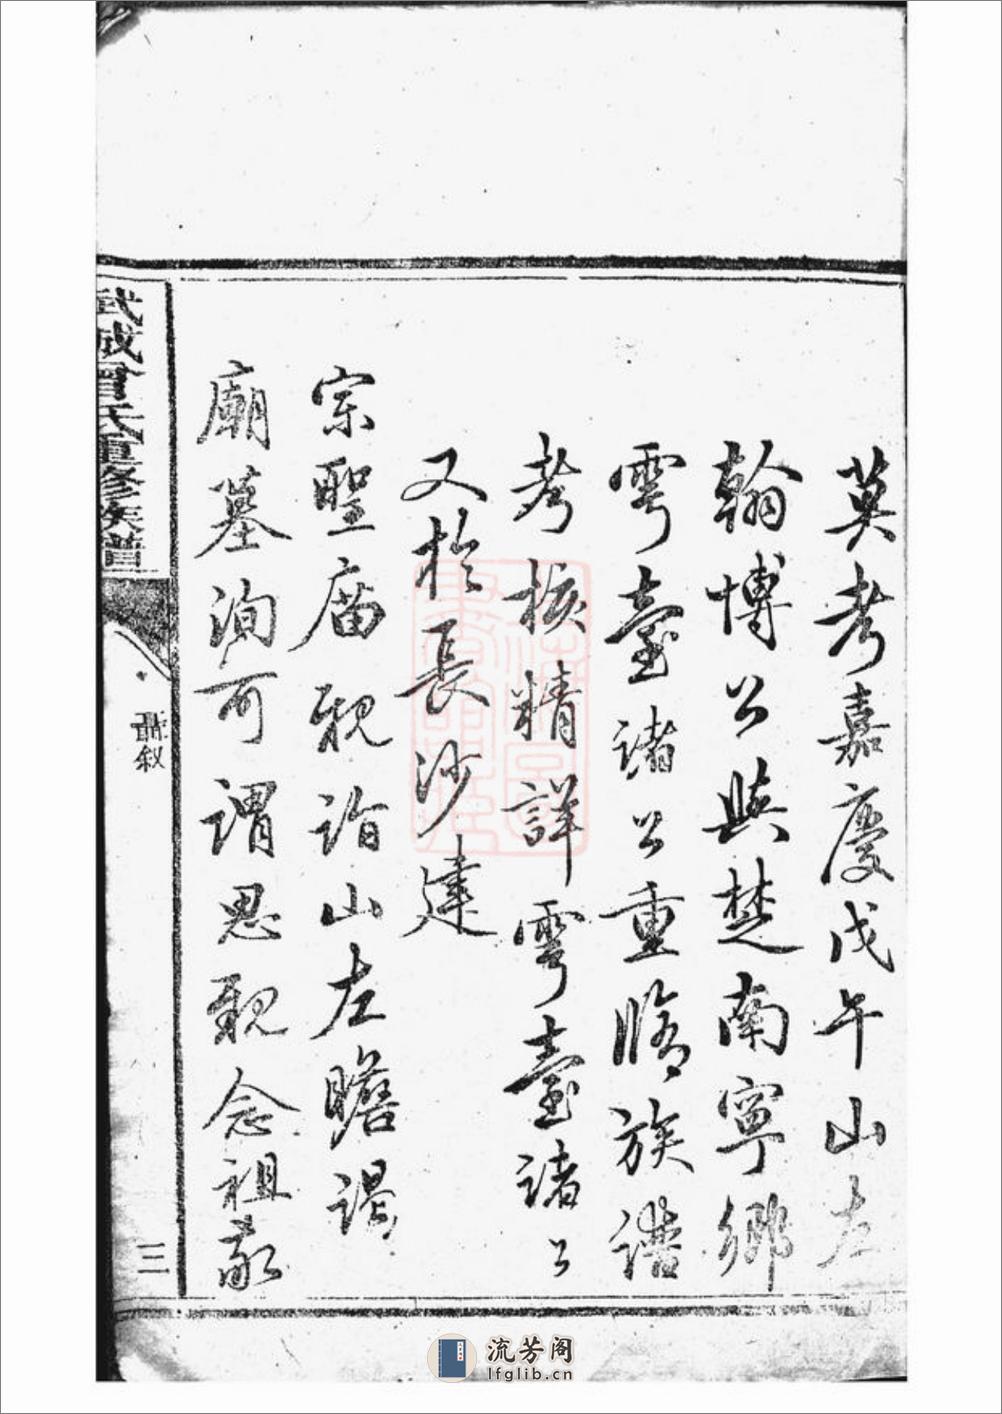 莫考嘉慶戊午山左
翰博公與楚南寧鄉
雩臺諸公重脩族譜
考核精詳雩臺諸公
又於長沙建
宗聖庙親詣山左瞻謁
廟墓洵可謂思親念祖敬
武城曾氏重修族譜
敘
三
流芳阁
lfglib.cn